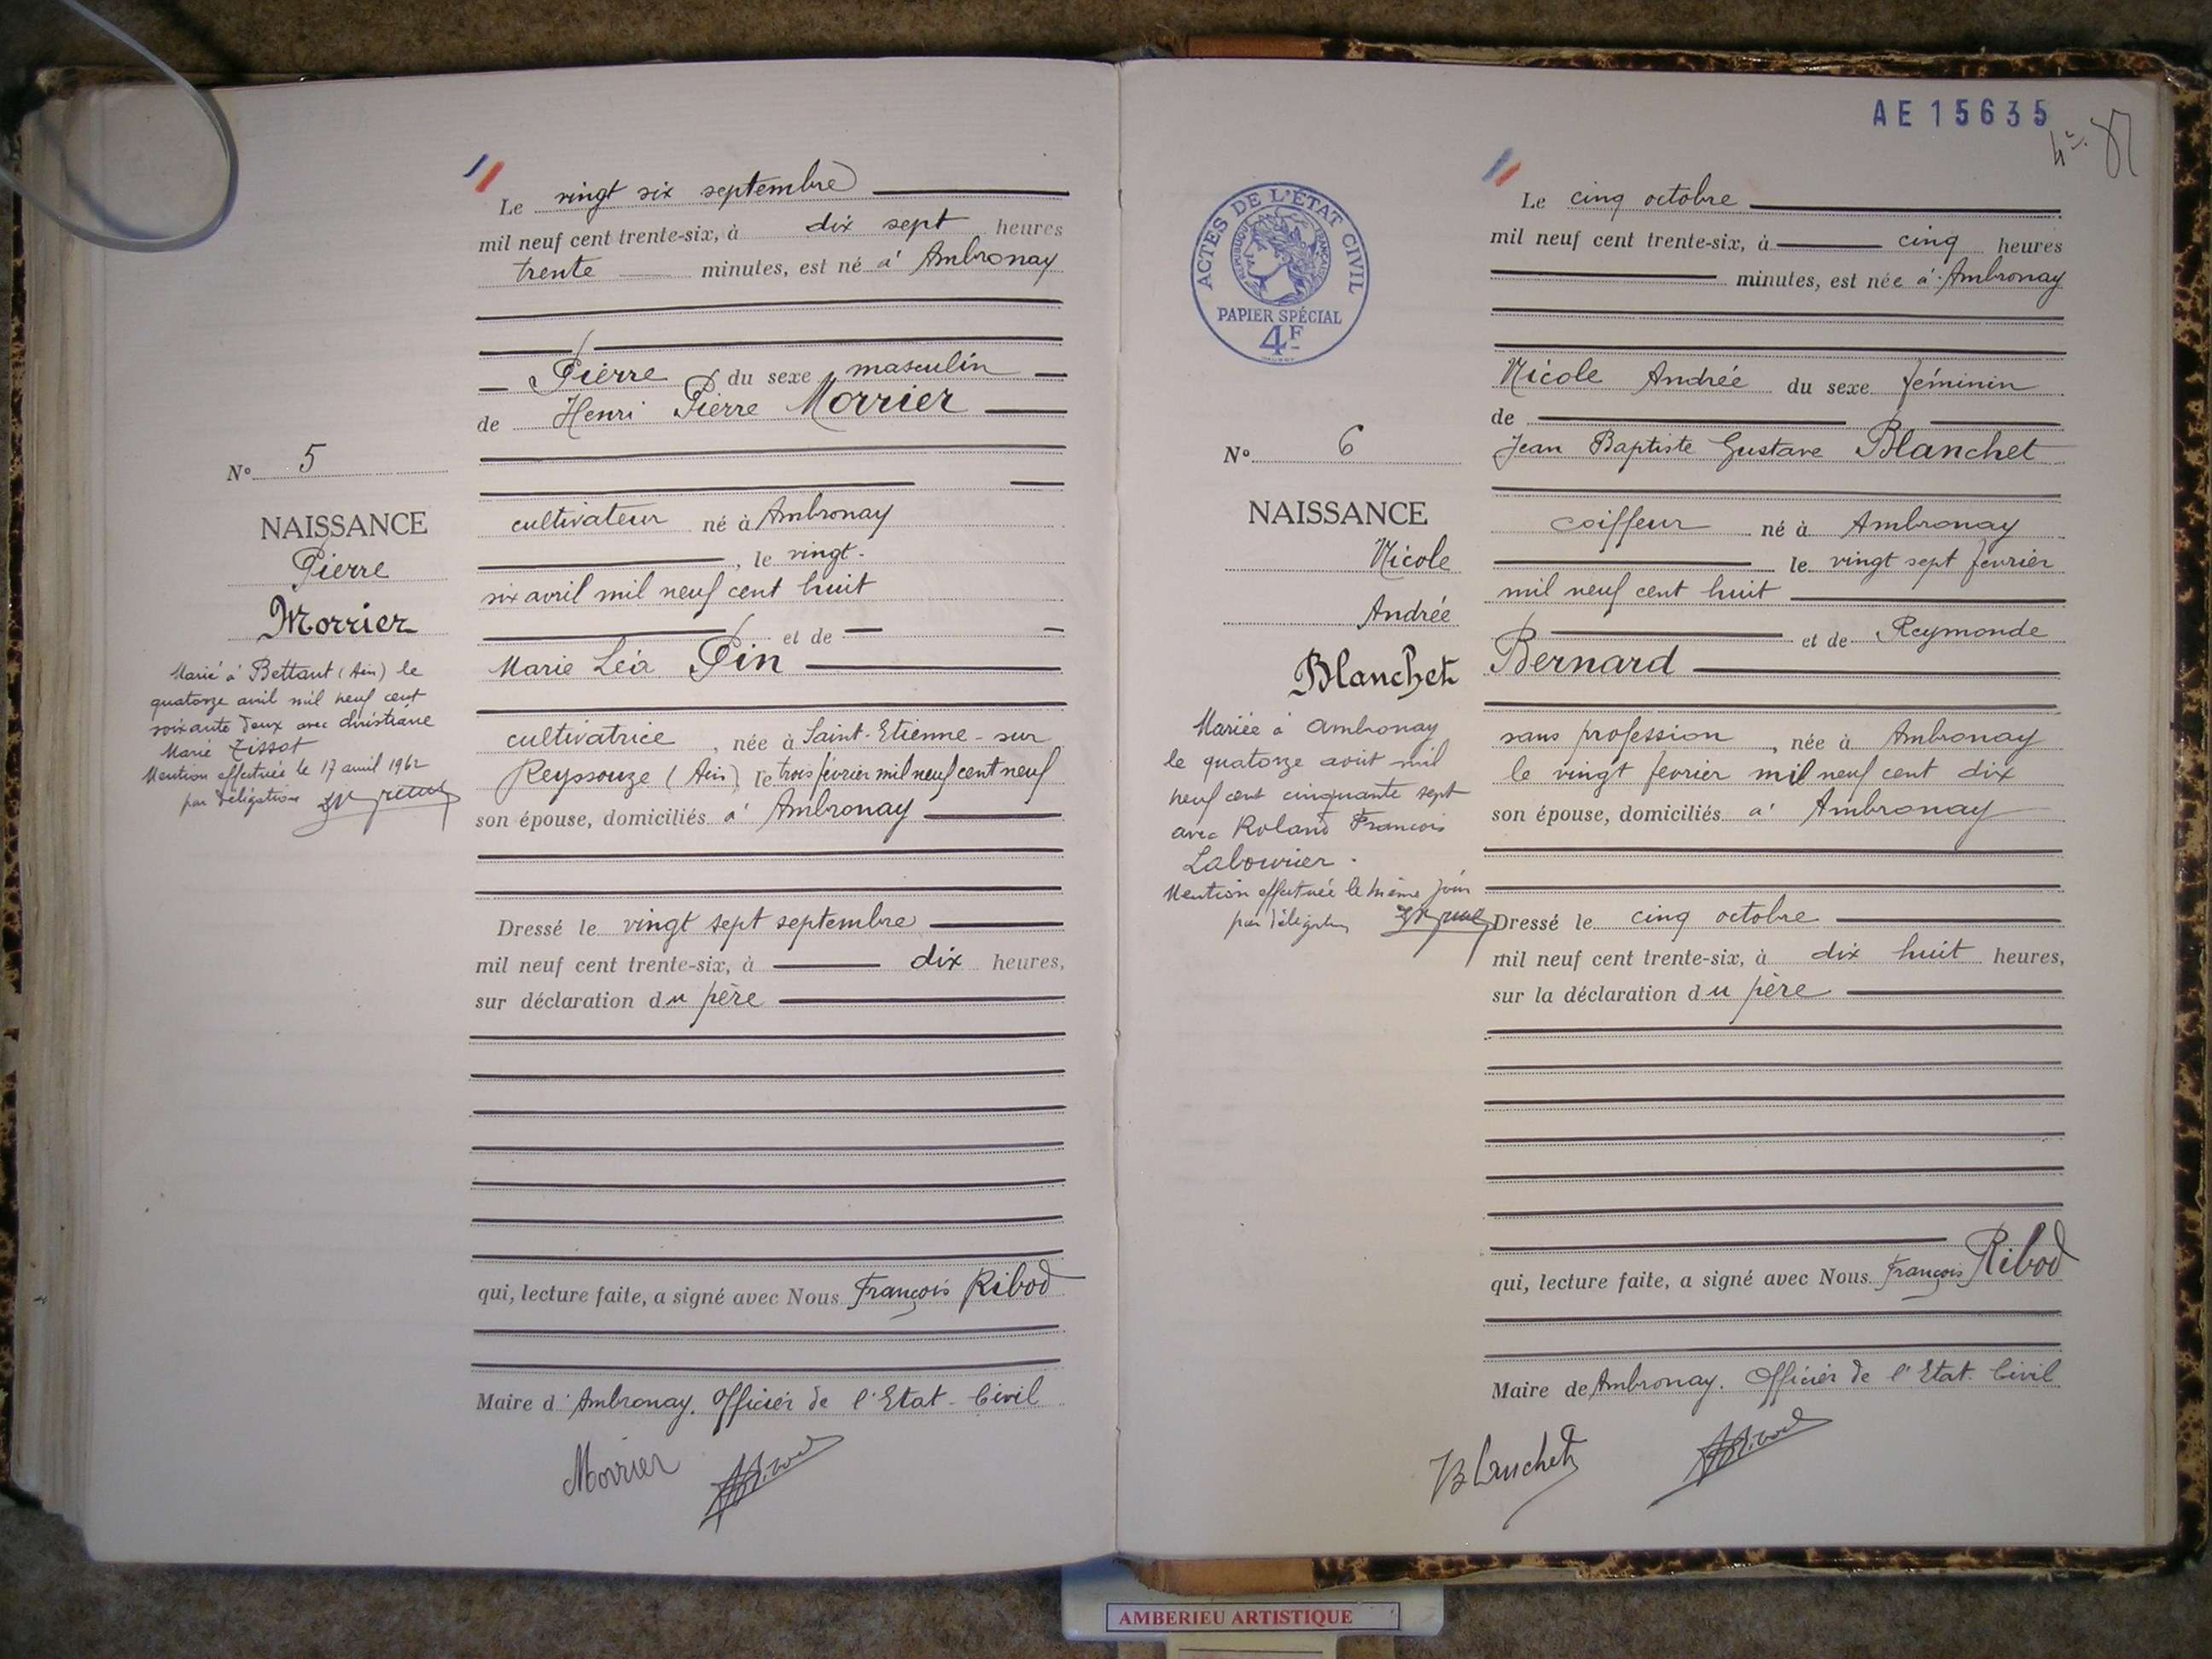 Le vingt six septembre
mil neuf cent trente-six, à dix sept heures
trente minutes, est né à Ambronay
Pierre du sexe masculin
de Henri Pierre Morrier
N° 5
NAISSANCE
Pierre
Morrier
Marié à Bettant (Ain) le
quatorze avril mil neuf cent
soixante deux avec Christiane
Marie Tissot
Mention effectuée le 17 avril 1962
par délégation
cultivateur né à Ambronay
, le vingt-
six avril mil neuf cent huit
et de
Marie Léa Pin
cultivatrice , née à Saint-Etienne-sur
Reyssouze (Ain), le trois février mil neuf cent neuf
son épouse, domiciliés à Ambronay
Dressé le vingt sept septembre
mil neuf cent trente-six, à dix heures,
sur déclaration du père
qui, lecture faite, a signé avec Nous François Ribod
Maire d'Ambronay. Officier de l'Etat-Civil
Morrier
AE15635
ACTES DE L'ÉTAT CIVIL
RÉPUBLIQUE FRANÇAISE
PAPIER SPÉCIAL
4F
Le cinq octobre
mil neuf cent trente-six, à cinq heures
minutes, est née à Ambronay
Nicole Andrée du sexe féminin
de
Jean Baptiste Gustave Blanchet
N° 6
NAISSANCE
Nicole
Andrée
Blanchet
Mariée à Ambronay
le quatorze août mil
neuf cent cinquante sept
avec Roland François
Labouvier.
Mention effectuée le même jour
par délégation
coiffeur né à Ambronay
le vingt sept fevrier
mil neuf cent huit
et de Reymonde
Bernard
sans profession , née à Ambronay
le vingt fevrier mil neuf cent dix
son épouse, domiciliés à Ambronay
Dressé le cinq octobre
mil neuf cent trente-six, à dix huit heures,
sur la déclaration du père
qui, lecture faite, a signé avec Nous François Ribod
Maire de Ambronay. Officier de l'Etat-Civil
Blanchet
AMBERIEU ARTISTIQUE